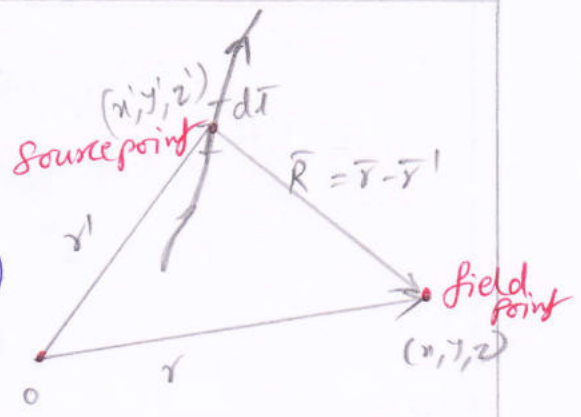 (x',y',z')
dl̄
Source point
R̄ = r̄ - r̄'
r'
field
point
(x,y,z)
r
O